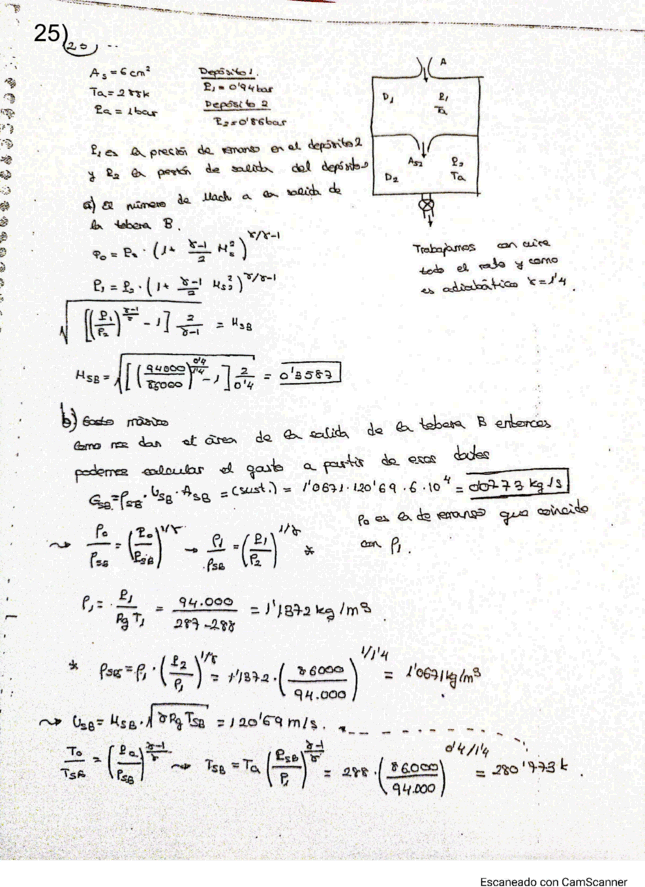 25) 20) ..
As = 6 cm²
Ta = 288k
Pa = 1 bar
Depósito 1.
P₁ = 0'94 bar
Depósito 2
P₂ = 0'86 bar
A
D₁
P₁
Ta
As2
P₂
D₂
Ta
P₁ es la presión de remanso en el depósito 2
y P₂ la presión de salida del depósito
a) El número de Mach a la salida de
la tobera B.
Trabajamos con aire
todo el rato y como
es adiabático γ = 1'4.
P₀ = Ps · (1 + (γ-1)/2 Ms²)^(γ/γ-1)
P₁ = P₂ · (1 + (γ-1)/2 Ms2²)^(γ/γ-1)
√([(P₁/P₂)^((γ-1)/γ) - 1] 2/(γ-1)) = MSB
MSB = √([(94000/86000)^(0'4/1'4) - 1] 2/0'4) = 0'3587
b) Gasto másico
Como nos dan el área de la salida de la tobera B entonces
podemos calcular el gasto a partir de esos datos
GSB = ρSB · USB · ASB = (sust.) = 1'0671 · 120'69 · 6 · 10⁴ = 0'0773 kg/s
ρ₀ es la de remanso que coincide
con ρ₁.
↝ ρ₀/ρSB = (P₀/PSB)^(1/γ) → ρ₁/ρSB = (P₁/P₂)^(1/γ) *
ρ₁ = P₁/(Rg T₁) = 94.000/(287-288) = 1'1372 kg/m³.
* ρSB = ρ₁ · (P₂/P₁)^(1/γ) = 1'1372 · (86000/94.000)^(1/1'4) = 1'0671 kg/m³
↝ USB = MSB · √(γ Rg TSB) = 120'69 m/s.
T₀/TSB = (Pa/PSB)^((γ-1)/γ) ↝ TSB = Ta (PSB/P₁)^((γ-1)/γ) = 288 · (86000/94.000)^(0'4/1'4) = 280'773 k.
Escaneado con CamScanner